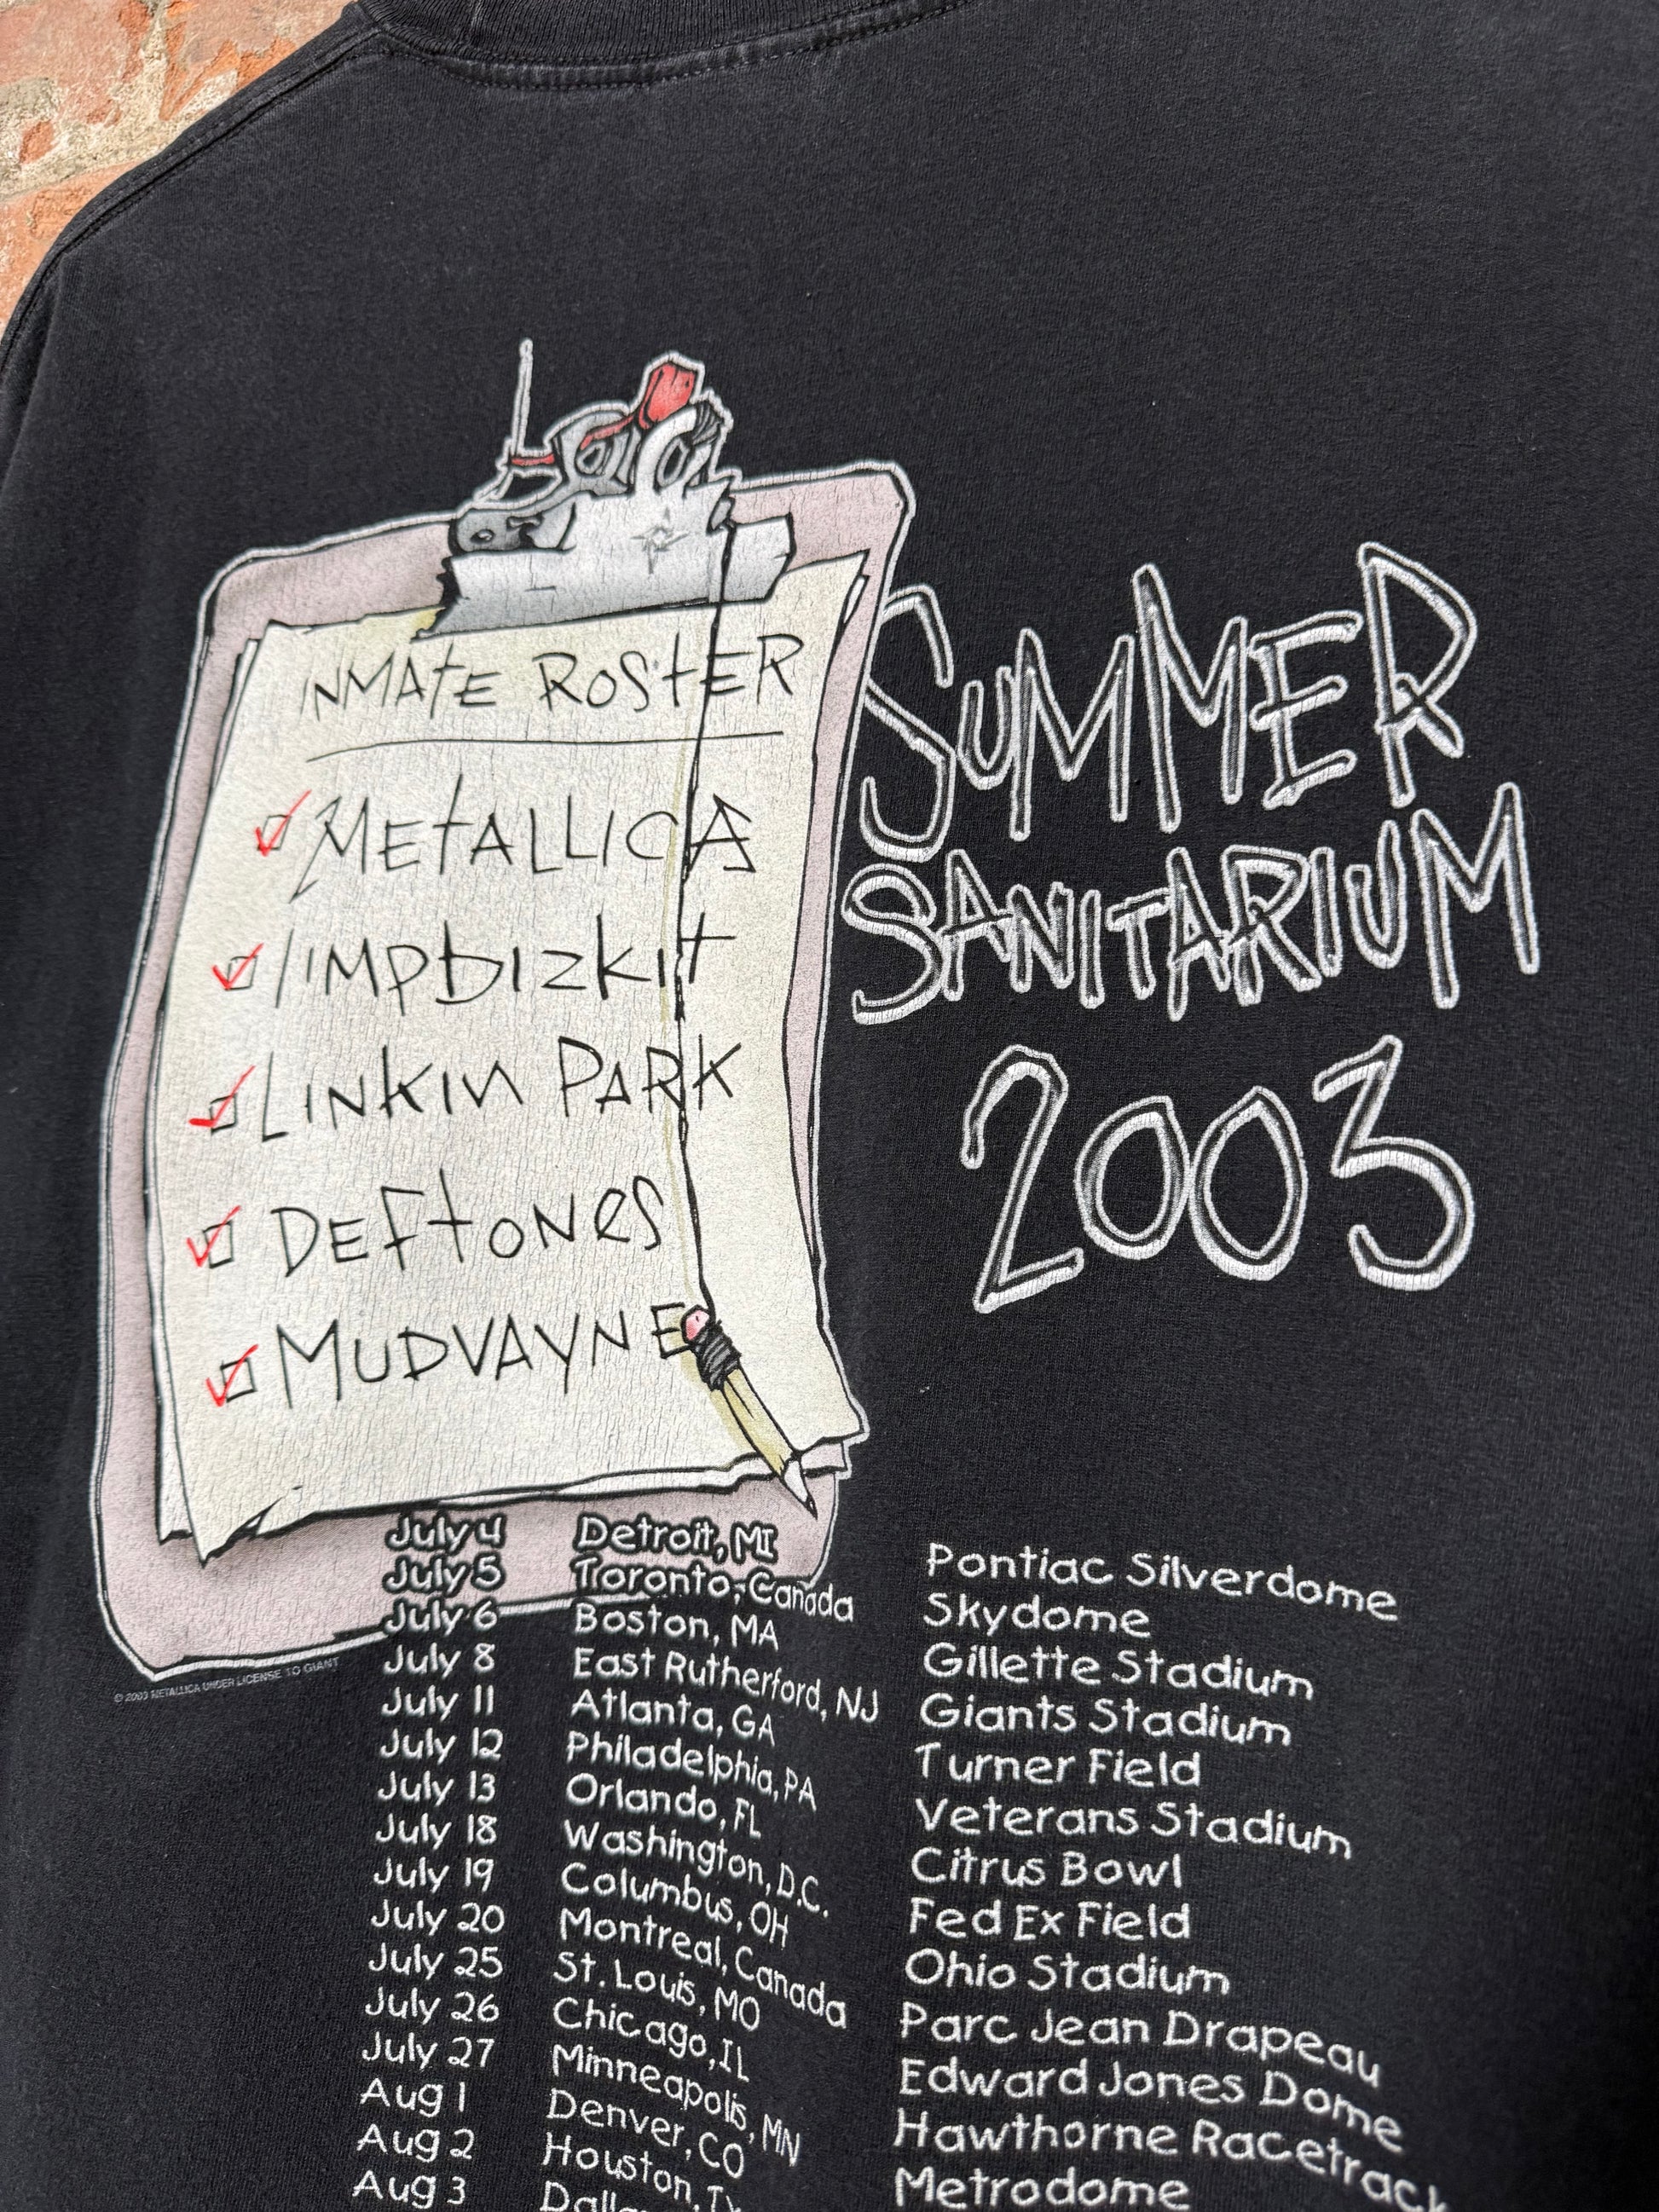 INMATE ROSTER
METALLICA
limpbizkit
LINKIN PARK
DEFTONES
MUDVAYNE
SUMMER
SANITARIUM
2003
July 4 Detroit, MI Pontiac Silverdome
July 5 Toronto, Canada Skydome
July 6 Boston, MA Gillette Stadium
July 8 East Rutherford, NJ Giants Stadium
July 11 Atlanta, GA Turner Field
July 12 Philadelphia, PA Veterans Stadium
July 13 Orlando, FL Citrus Bowl
July 18 Washington, D.C. Fed Ex Field
July 19 Columbus, OH Ohio Stadium
July 20 Montreal, Canada Parc Jean Drapeau
July 25 St. Louis, MO Edward Jones Dome
July 26 Chicago, IL Hawthorne Racetrack
July 27 Minneapolis, MN Metrodome
Aug 1 Denver, CO
Aug 2 Houston,
Aug 3
© 2003 METALLICA UNDER LICENSE TO GIANT